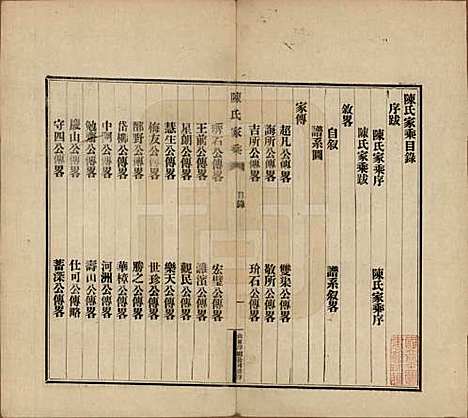 陳氏家乘目錄
序跋
陳氏家乘序 陳氏家乘序
陳氏家乘跋
敘畧
自叙 譜系叙畧
譜系圖
家傳
超凡公傳畧 雙渠公傳畧
誨所公傳畧 敬所公傳畧
吉所公傳畧 玠石公傳畧
陳氏家乘 目錄 一
石公傳畧 宏璧公傳畧
王前公傳畧 濰濱公傳畧
星朗公傳畧 觀民公傳畧
慧生公傳畧 樂天公傳畧
梅友公傳畧 世珍公傳畧
郚野公傳畧 勝之公傳畧
岱樵公傳畧 華樟公傳畧
中公傳畧 河洲公傳畧
勉齋公傳畧 壽山公傳畧
慶山公傳畧 仕可公傳略
守四公傳畧 蓄深公傳畧